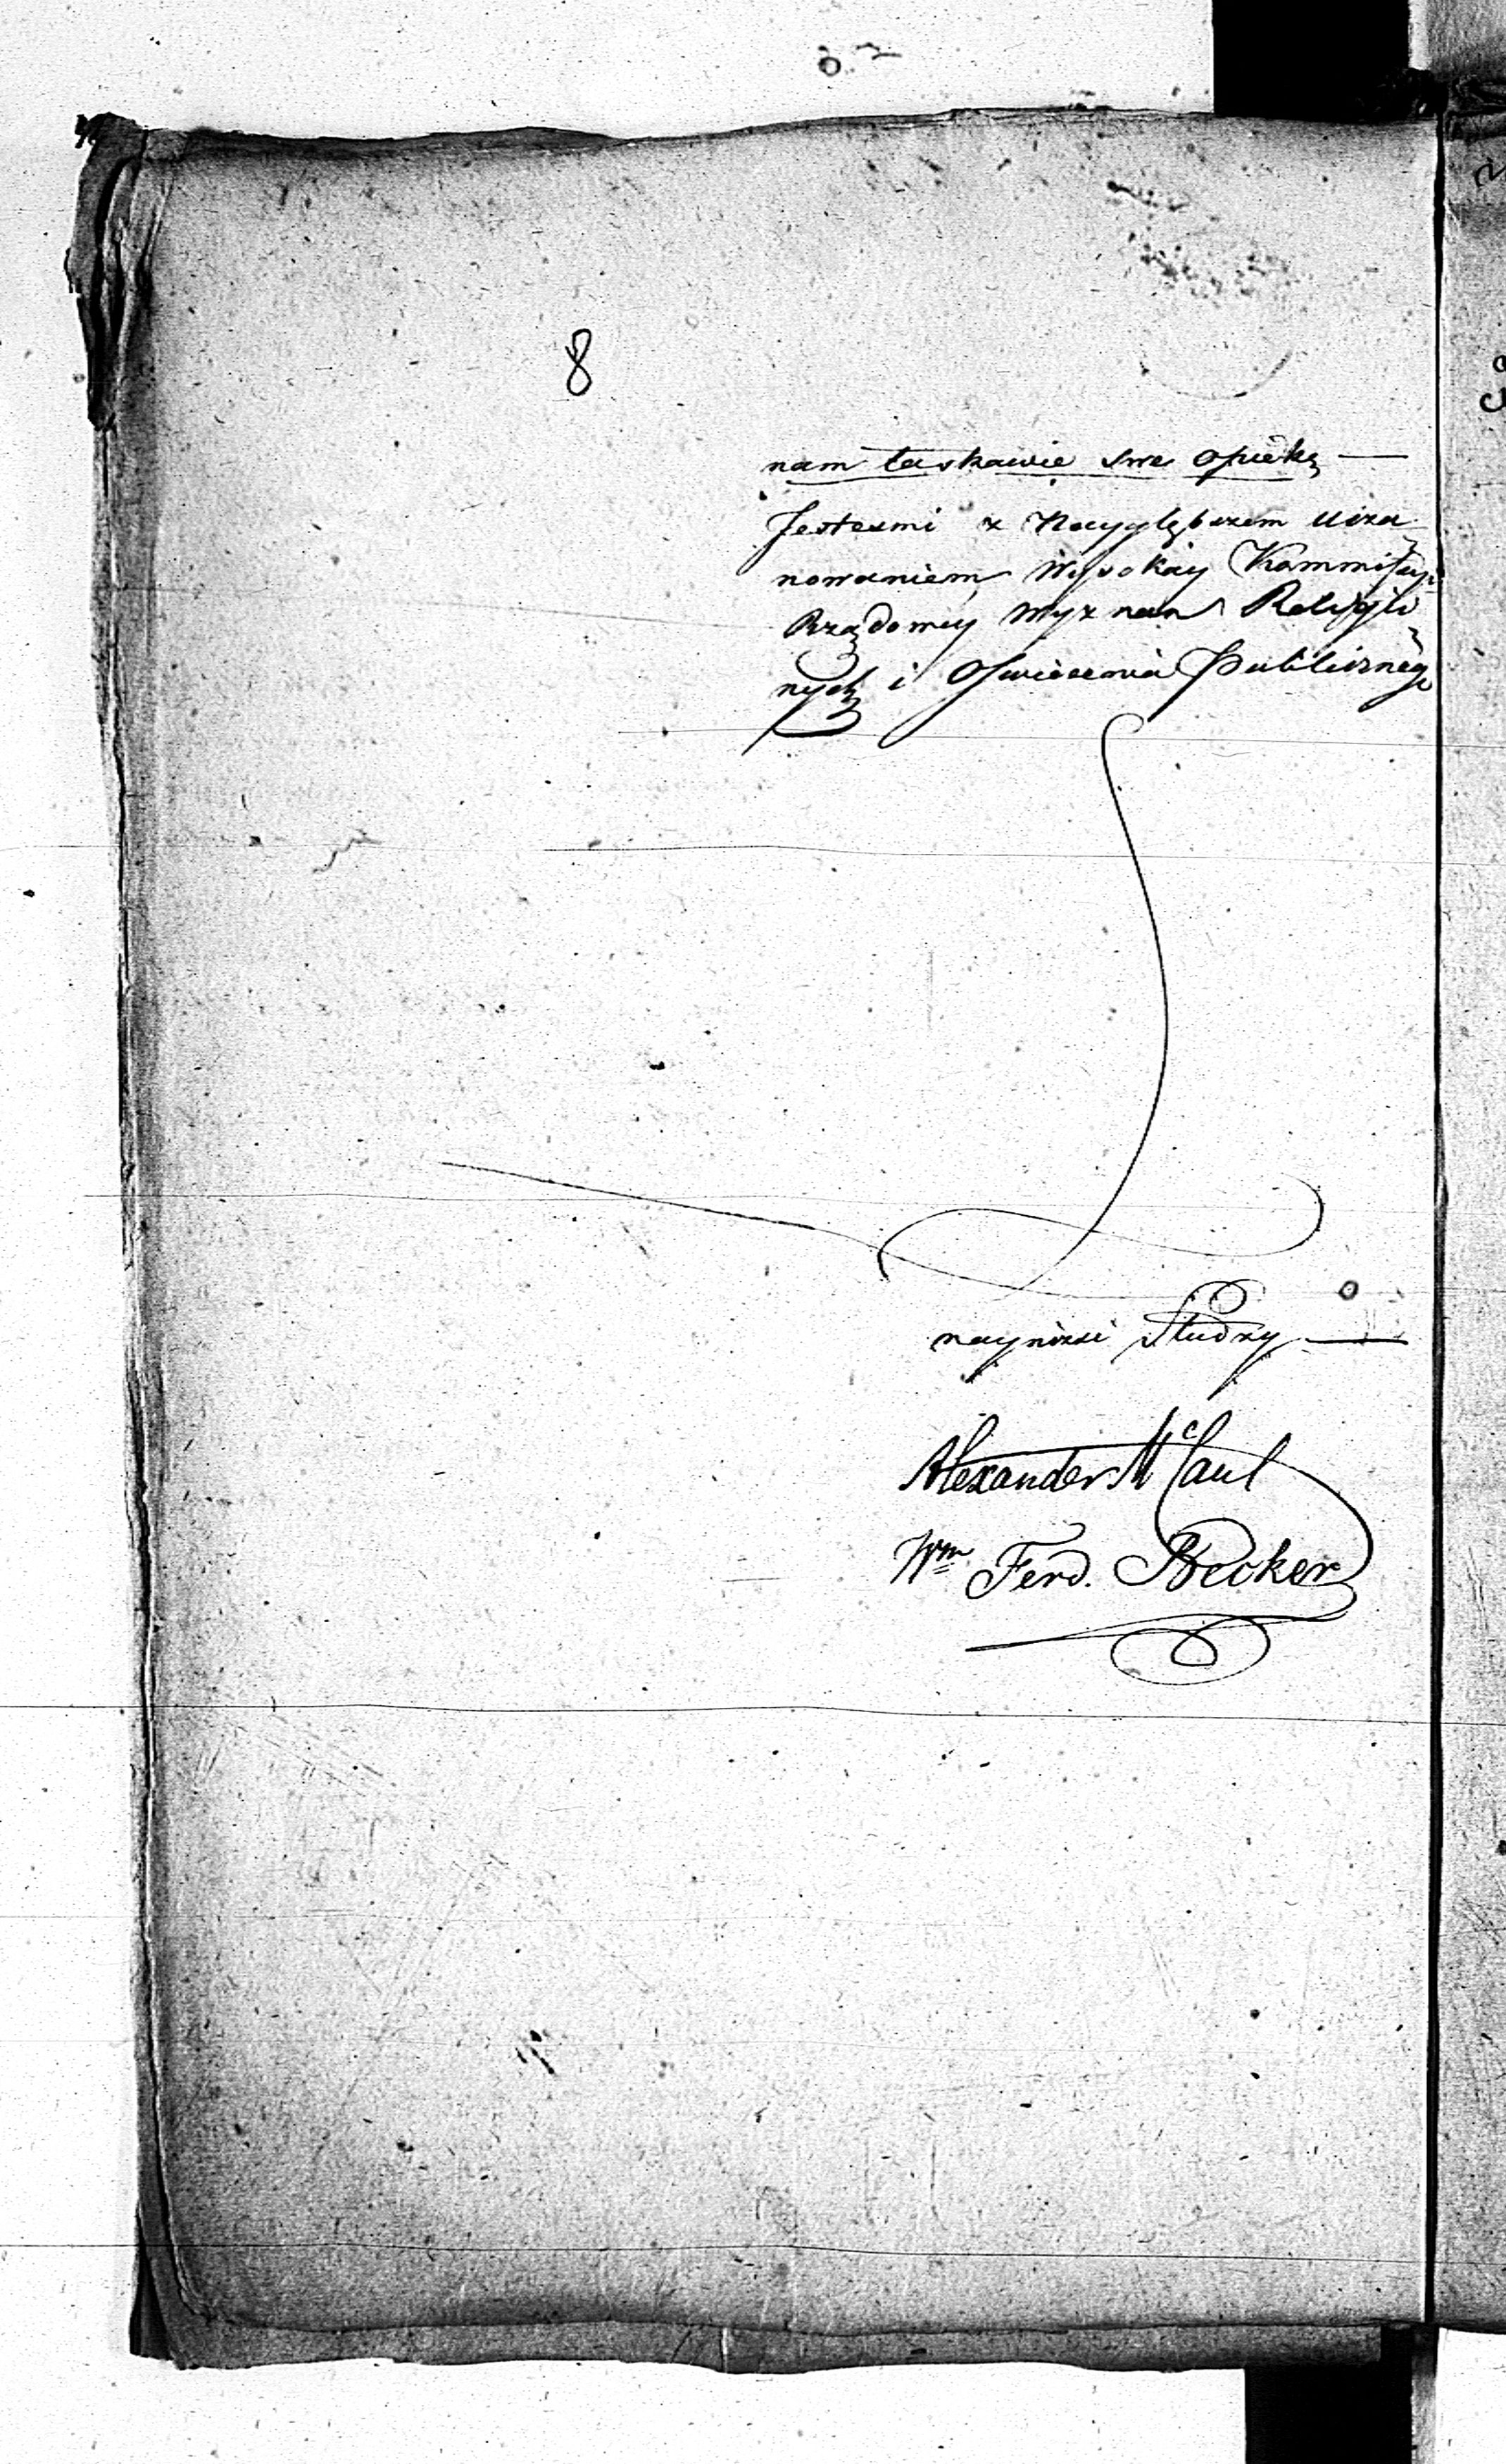 8
nam łaskawie swe Opiekę —
Jestesmi z Nayglębszem usza
nowaniem Wysokiey Kommissyi
Rządowey Wyznan Religii
nych i Oswiecenia Publicznego
naynizsi Słudzy —
Alexander McCaul
Wm Ferd. Becker